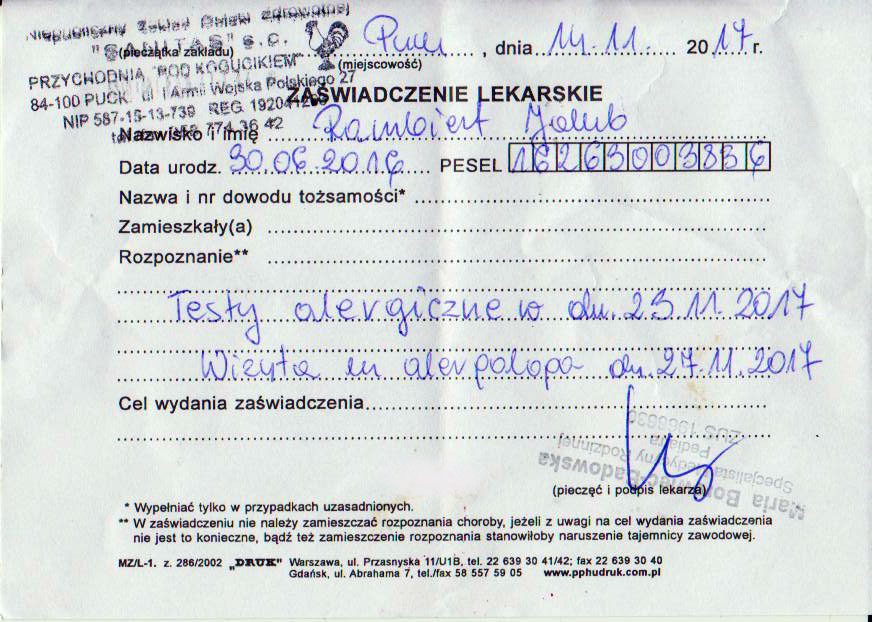 Niepubliczny Zakład Opieki Zdrowotnej
"SANITAS" s.c.
(pieczątka zakładu)
PRZYCHODNIA "POD KOGUCIKIEM"
84-100 PUCK ul. Armii Wojska Polskiego 27
NIP 587-15-13-739 REG. 192041
774 36 42
Puck, dnia 14.11. 2017 r.
(miejscowość)
ZAŚWIADCZENIE LEKARSKIE
Nazwisko i imię Jakub
Data urodz. 30.06.2016 PESEL 16263003836
Nazwa i nr dowodu tożsamości*
Zamieszkały(a)
Rozpoznanie**
Testy alergiczne w dn. 23.11.2017
Wizyta u alergologa dn. 27.11.2017
Cel wydania zaświadczenia
Maria
Specjalista Medycyny Rodzinnej
Pediatra
(pieczęć i podpis lekarza)
* Wypełniać tylko w przypadkach uzasadnionych.
** W zaświadczeniu nie należy zamieszczać rozpoznania choroby, jeżeli z uwagi na cel wydania zaświadczenia
nie jest to konieczne, bądź też zamieszczenie rozpoznania stanowiłoby naruszenie tajemnicy zawodowej.
MZ/L-1. z. 286/2002 „DRUK" Warszawa, ul. Przasnyska 11/U1B, tel. 22 639 30 41/42; fax 22 639 30 40
Gdańsk, ul. Abrahama 7, tel./fax 58 557 59 05 www.pphudruk.com.pl